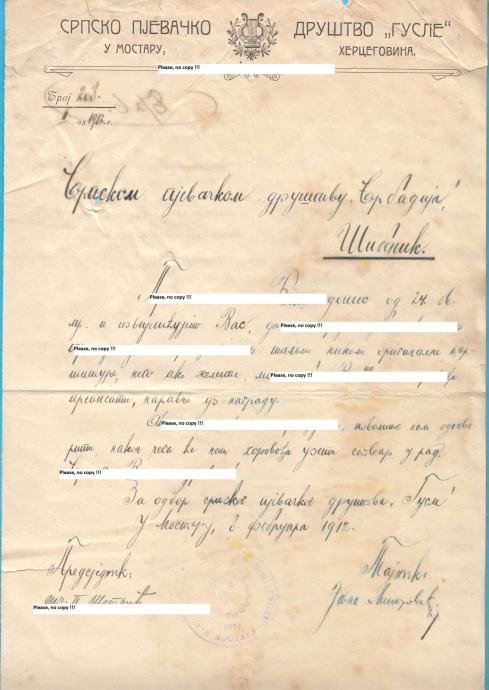 СРПСКО ПЈЕВАЧКО ДРУШТВО „ГУСЛЕ“
У МОСТАРУ, ХЕРЦЕГОВИНА.
Please, no copy !!!
Број
од 1912 г.
Српском пјевачком друштву
Шибеник.
Please, no copy !!!
од 24. ов.
мј. и Вас, да Please, no copy !!!
Please, no copy !!! оригиналне пар-
титуре, него ако желите Please, no copy !!!
преписати, наравно уз награду.
Please, no copy !!! изволите нам одгово
рити, након чега ће наш хоровођа узети ствар у рад.
Please, no copy !!!
За одбор српског пјевачког друштва „Гусле“
У Мостару, 8. фебруара 1912.
Предсједник: Тајник:
Please, no copy !!!